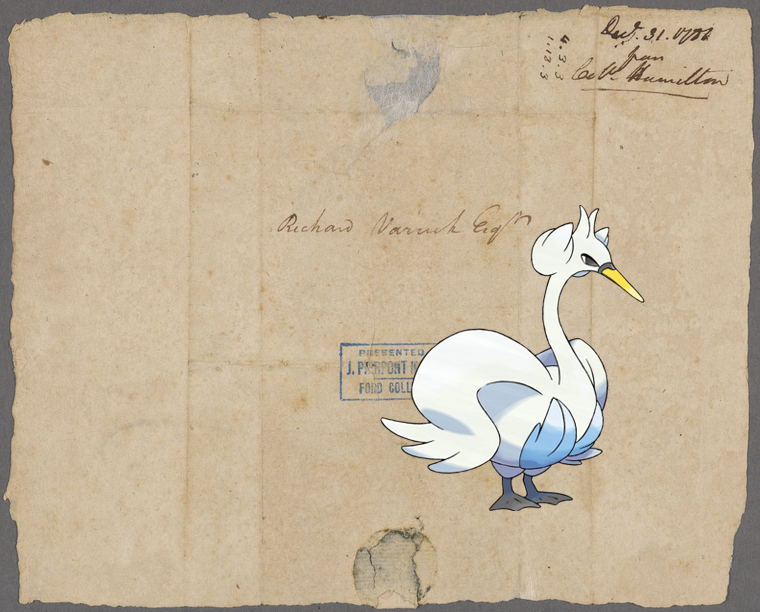 31.
from
Hamilton
4.3.3
1.13.3
Richard Varick Esqr
PRESENTED
J. PIERPONT M
FORD COLL